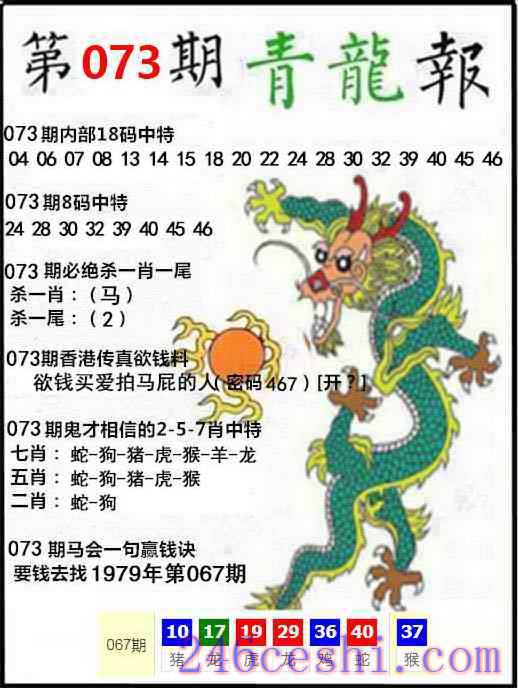 第073期青龍報
073期内部18码中特
04 06 07 08 13 14 15 18 20 22 24 28 30 32 39 40 45 46
073期8码中特
24 28 30 32 39 40 45 46
073 期必绝杀一肖一尾
杀一肖：（马）
杀一尾：（2）
073期香港传真欲钱料
欲钱买爱拍马屁的人(密码467)[开？]
073期鬼才相信的2-5-7肖中特
七肖：蛇-狗-猪-虎-猴-羊-龙
五肖：蛇-狗-猪-虎-猴
二肖：蛇-狗
073 期马会一句赢钱诀
要钱去找1979年第067期
067期 10 17 19 29 36 40 37
猪 龙 虎 龙 鸡 蛇 猴
246ceshi.com